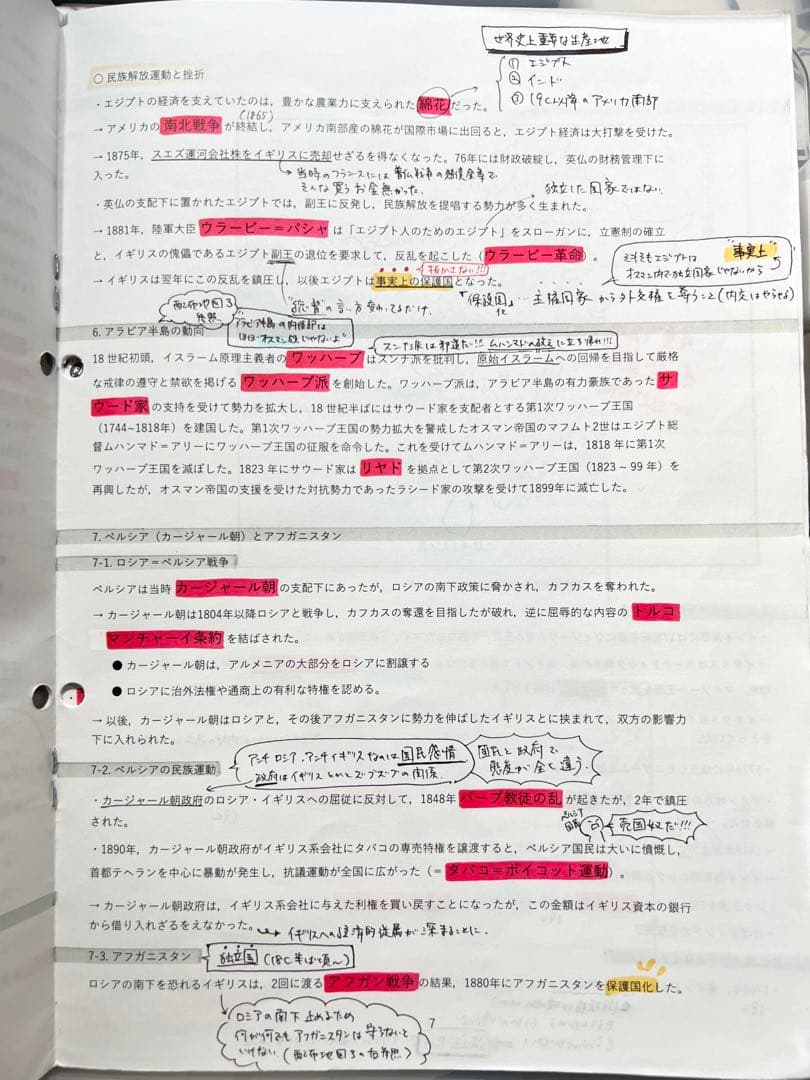 世界史上重要な生産地
① エジプト
② インド
③ 19C以降のアメリカ南部
○ 民族解放運動と挫折
・エジプトの経済を支えていたのは，豊かな農業力に支えられた 綿花 だった。
(1865)
→ アメリカの 南北戦争 が終結し，アメリカ南部産の綿花が国際市場に出回ると，エジプト経済は大打撃を受けた。
→ 1875年，スエズ運河会社株をイギリスに売却せざるを得なくなった。76年には財政破綻し，英仏の財務管理下に
入った。
当時のフランスには普仏戦争の賠償金等で
そんな買うお金無かった.
独立した国家ではない
・英仏の支配下に置かれたエジプトでは，副王に反発し，民族解放を提唱する勢力が多く生まれた。
→ 1881年，陸軍大臣 ウラービー＝パシャ は「エジプト人のためのエジプト」をスローガンに，立憲制の確立
と，イギリスの傀儡であるエジプト副王の退位を要求して，反乱を起こした（ウラービー革命）。
そもそもエジプトは
オスマン内で独立国家じゃないから
"事実上"
抜かさない!!!
→ イギリスは翌年にこの反乱を鎮圧し，以後エジプトは事実上の保護国となった。
"総督"の言い方変わってるだけ.
「保護国化」…主権国家から外交権を奪うこと(内政はやらせる)
配布地図3
参照
6. アラビア半島の動向
アラビア半島の内陸部は
ほぼ"オスマン領じゃないよ"
スンナ派は邪道だ!! ムハンマドの教えに立ち帰れ!!!
18 世紀初頭，イスラーム原理主義者の ワッハーブ はスンナ派を批判し，原始イスラームへの回帰を目指して厳格
な戒律の遵守と禁欲を掲げる ワッハーブ派 を創始した。ワッハーブ派は，アラビア半島の有力豪族であった サ
ウード家 の支持を受けて勢力を拡大し，18 世紀半ばにはサウード家を支配者とする第1次ワッハーブ王国
（1744~1818年）を建国した。第1次ワッハーブ王国の勢力拡大を警戒したオスマン帝国のマフムト2世はエジプト総
督ムハンマド＝アリーにワッハーブ王国の征服を命令した。これを受けてムハンマド＝アリーは，1818 年に第1次
ワッハーブ王国を滅ぼした。1823 年にサウード家は リヤド を拠点として第2次ワッハーブ王国（1823 ~ 99 年）を
再興したが，オスマン帝国の支援を受けた対抗勢力であったラシード家の攻撃を受けて1899年に滅亡した。
7. ペルシア（カージャール朝）とアフガニスタン
7-1. ロシア＝ペルシア戦争
ペルシアは当時 カージャール朝 の支配下にあったが，ロシアの南下政策に脅かされ，カフカスを奪われた。
→ カージャール朝は1804年以降ロシアと戦争し，カフカスの奪還を目指したが破れ，逆に屈辱的な内容の トルコ
マンチャーイ条約 を結ばされた。
● カージャール朝は，アルメニアの大部分をロシアに割譲する
● ロシアに治外法権や通商上の有利な特権を認める。
→ 以後，カージャール朝はロシアと，その後アフガニスタンに勢力を伸ばしたイギリスとに挟まれて，双方の影響力
下に入れられた。
アンチロシア、アンチイギリスなのは国民感情
政府はイギリスとかとズブズブの関係.
国民と政府で
態度が全く違う.
7-2. ペルシアの民族運動
・カージャール朝政府のロシア・イギリスへの屈従に反対して，1848年 バーブ教徒の乱 が起きたが，2年で鎮圧
された。
売国奴だ!!!
・1890年，カージャール朝政府がイギリス系会社にタバコの専売特権を譲渡すると，ペルシア国民は大いに憤慨し，
首都テヘランを中心に暴動が発生し，抗議運動が全国に広がった（＝ タバコ＝ボイコット運動）。
→ カージャール朝政府は，イギリス系会社に与えた利権を買い戻すことになったが，この金額はイギリス資本の銀行
から借り入れざるをえなかった。
イギリスへの経済的従属が深まることに.
7-3. アフガニスタン
独立国(18C半ば頃〜)
ロシアの南下を恐れるイギリスは，2回に渡る アフガン戦争 の結果，1880年にアフガニスタンを保護国化した。
ロシアの南下止めるため
何が何でもアフガニスタンは守らないと
いけない(配布地図3の右参照)
7